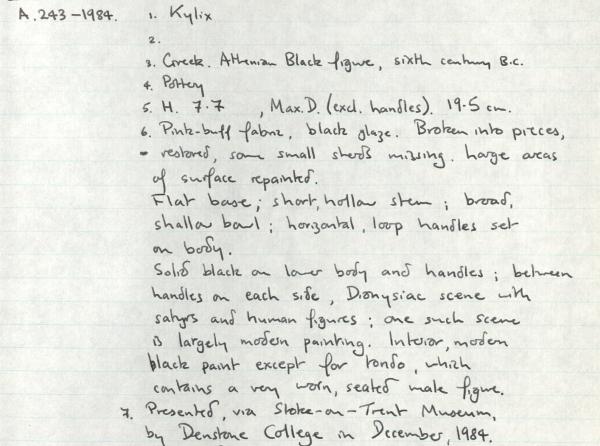 A.243-1984. 1. Kylix
2.
3. Greek. Athenian Black figure, sixth century B.C.
4. Pottery
5. H. 7.7 , Max.D. (excl. handles). 19.5 cm.
6. Pink-buff fabric, black glaze. Broken into pieces,
- restored, some small sherds missing. Large areas
of surface repainted.
Flat base; short, hollow stem; broad,
shallow bowl; horizontal, loop handles set
on body.
Solid black on lower body and handles; between
handles on each side, Dionysiac scene with
satyrs and human figures; one such scene
is largely modern painting. Interior, modern
black paint except for tondo, which
contains a very worn, seated male figure.
7. Presented, via Stoke-on-Trent Museum,
by Denstone College in December, 1984.